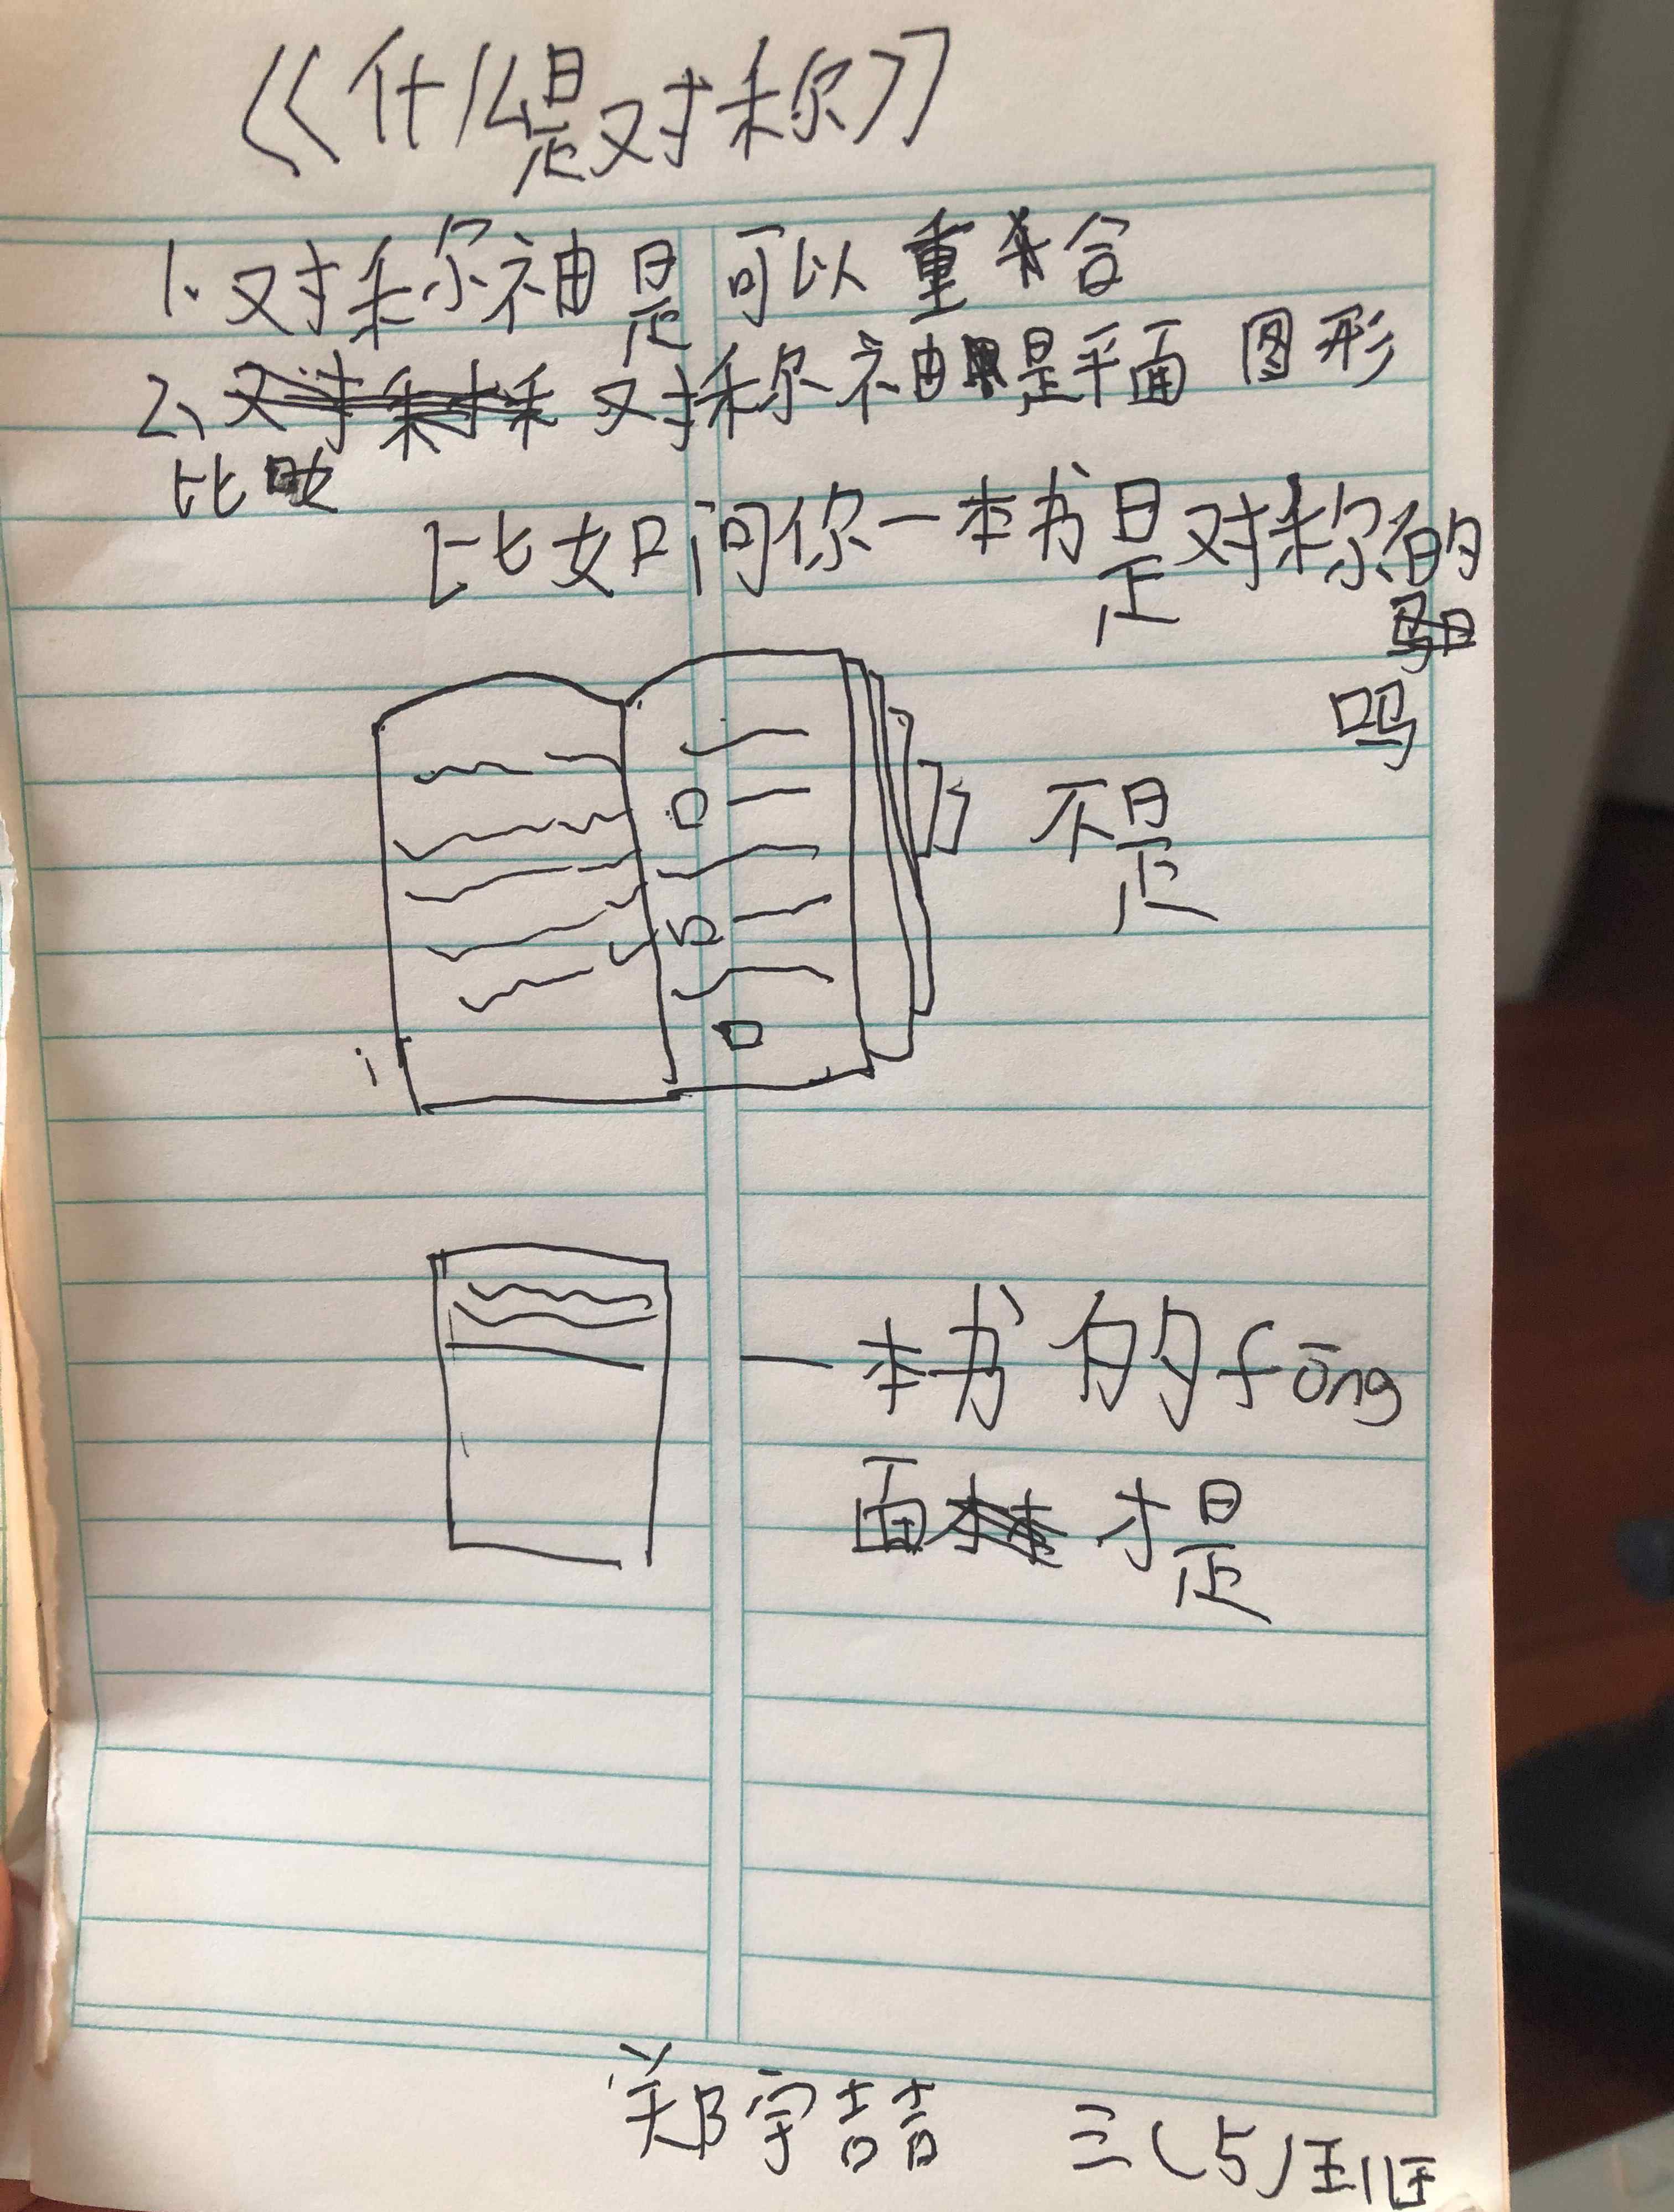 《什么是对称》
1. 对称袖是可以重合
2、对称袖是平面图形
比如问你一本书是对称的
吗
不是
一本书的fōng
面才是
郑宇喆 三(5)班